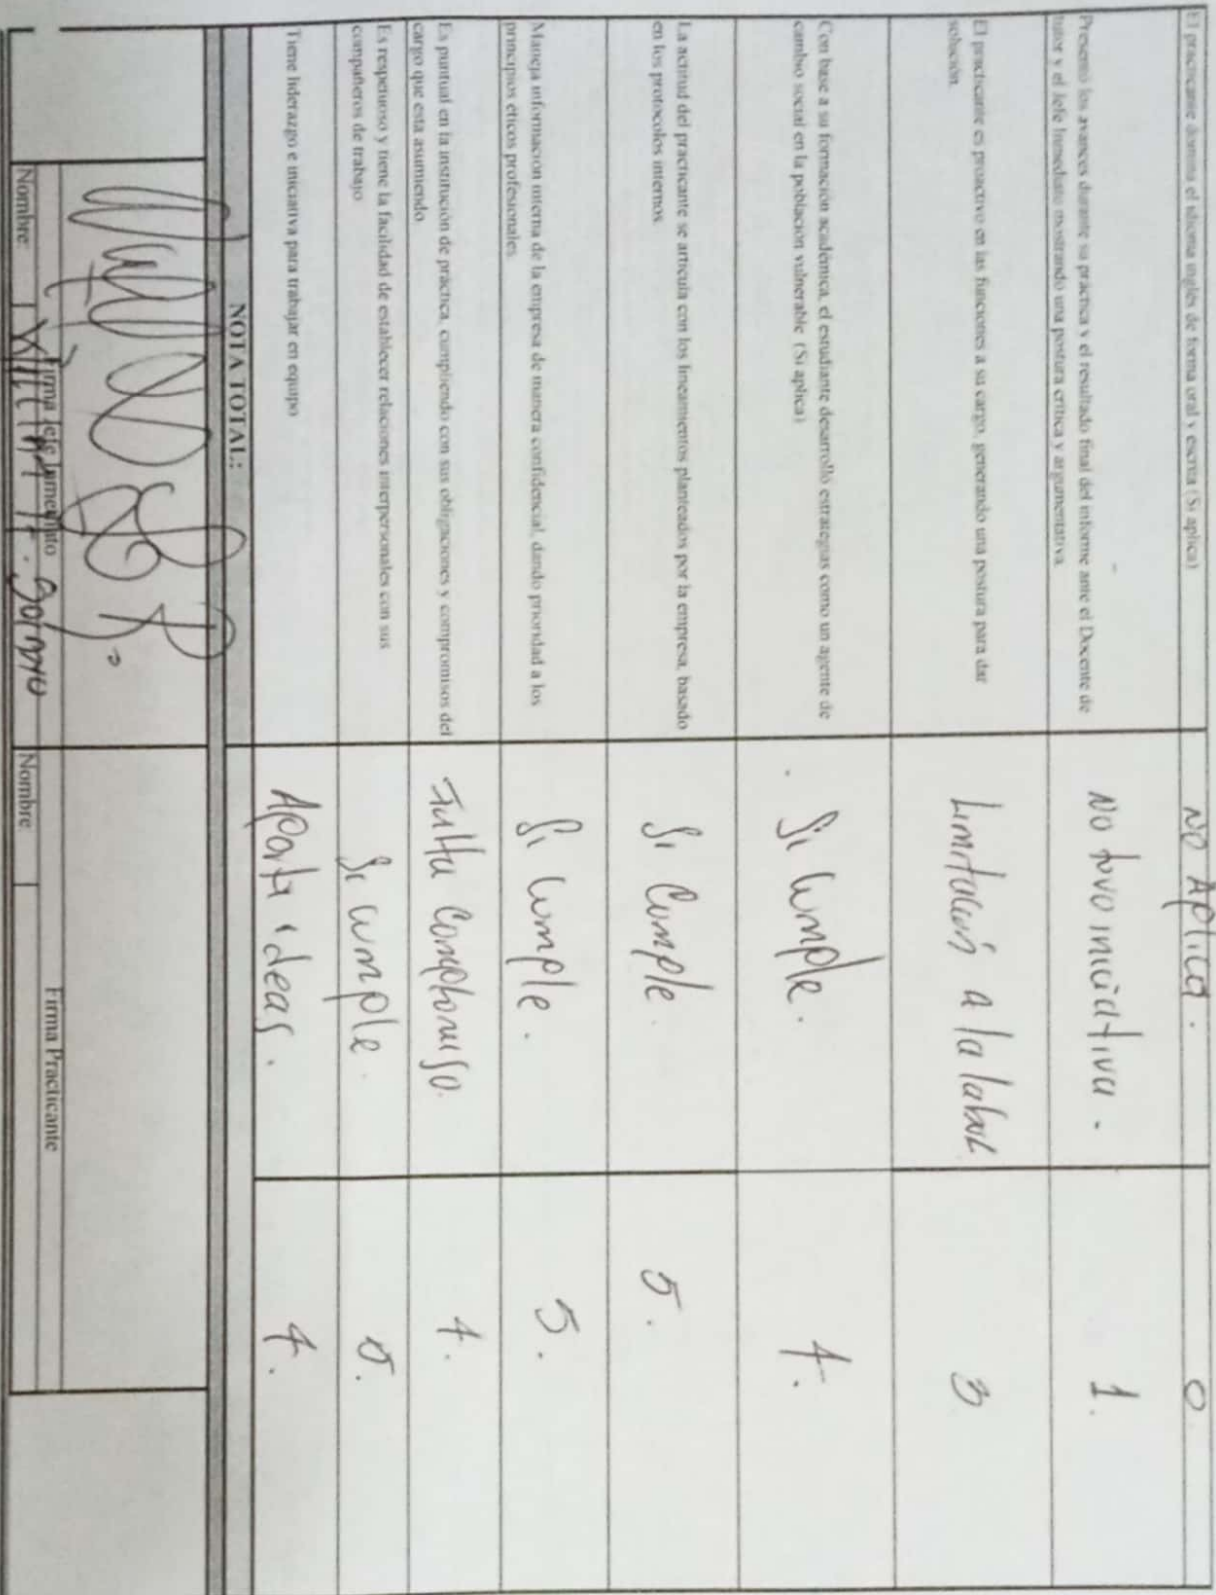 El practicante domina el idioma inglés de forma oral y escrita (Si aplica)
NO Aplica.
0.
Presentó los avances durante su práctica y el resultado final del informe ante el Docente de
tutor y el Jefe Inmediato mostrando una postura crítica y argumentativa.
NO tuvo iniciativa.
1.
El practicante es proactivo en las funciones a su cargo, generando una postura para dar
solución.
Limitación a la labor
3
Con base a su formación académica, el estudiante desarrolló estrategias como un agente de
cambio social en la población vulnerable (Si aplica)
Si Cumple.
4.
La actitud del practicante se articula con los lineamientos planteados por la empresa, basado
en los protocolos internos.
Si Cumple.
5.
Maneja información interna de la empresa de manera confidencial, dando prioridad a los
principios éticos profesionales.
Si Cumple.
5.
Es puntual en la institución de práctica, cumpliendo con sus obligaciones y compromisos del
cargo que está asumiendo.
Falta Compromiso.
4.
Es respetuoso y tiene la facilidad de establecer relaciones interpersonales con sus
compañeros de trabajo
Si cumple.
5.
Tiene liderazgo e iniciativa para trabajar en equipo
Aporta ideas.
4.
NOTA TOTAL:
Firma Jefe Inmediato
Firma Practicante
Nombre:
Nombre